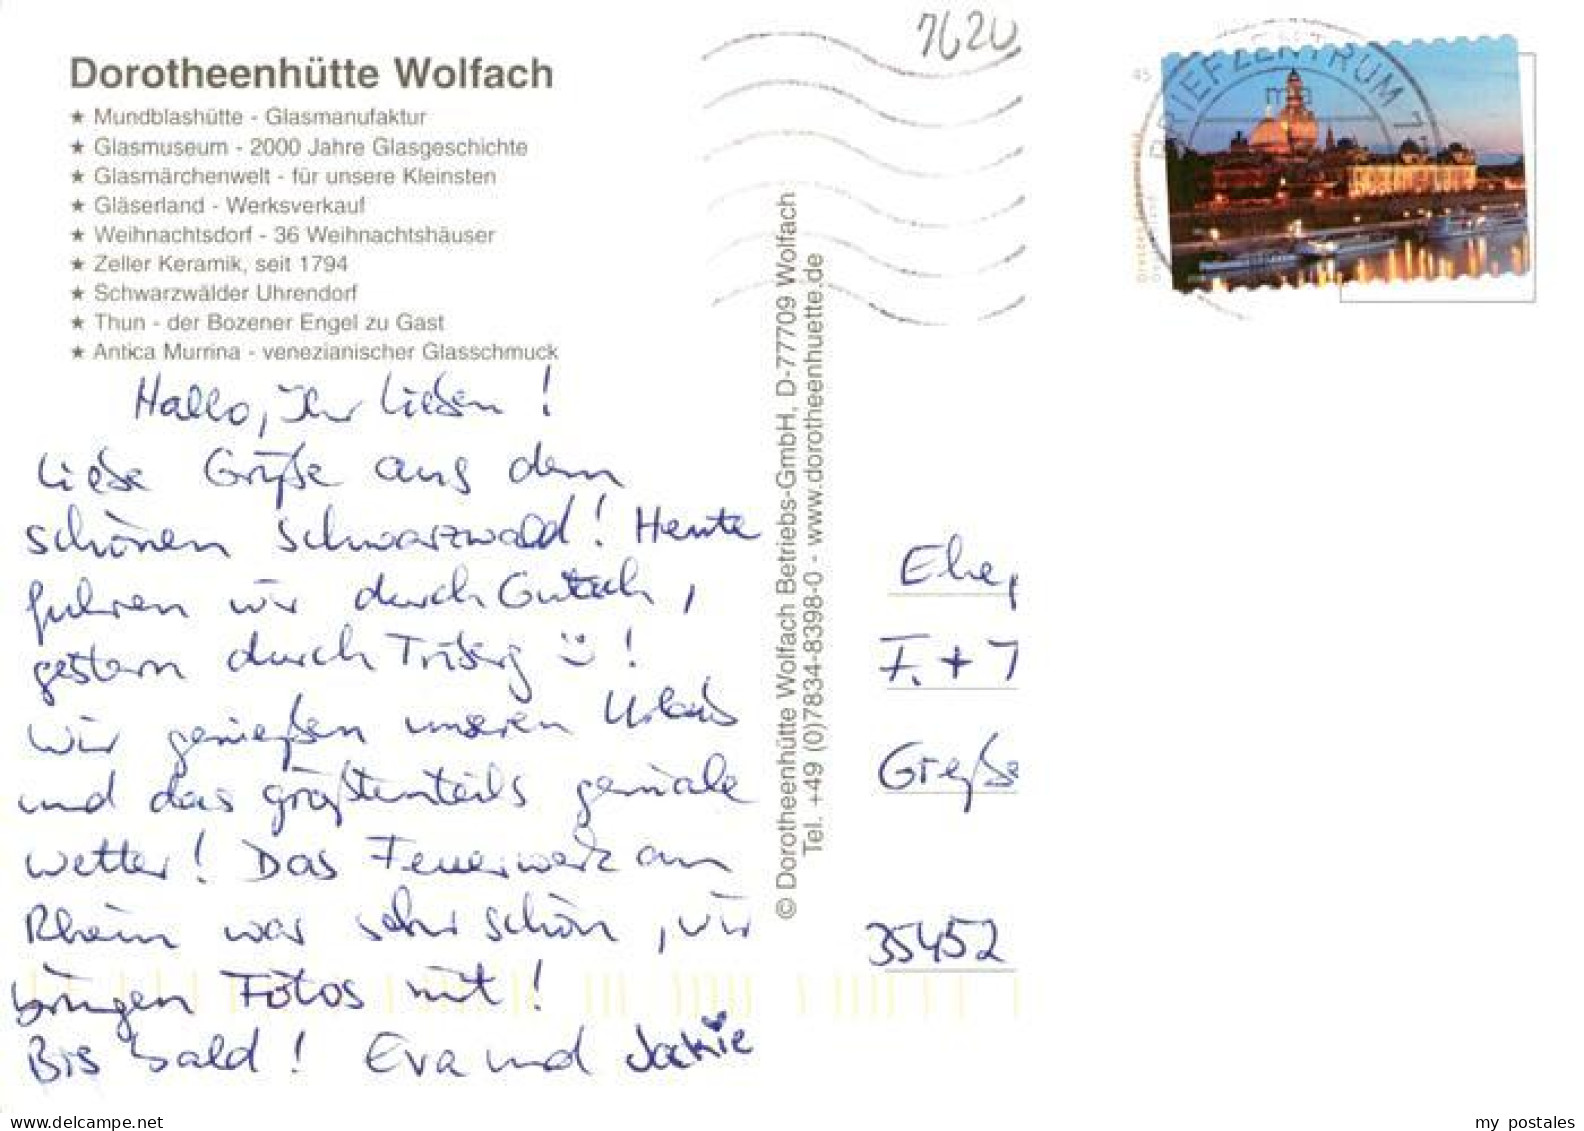 7620
Dorotheenhütte Wolfach
★ Mundblashütte - Glasmanufaktur
★ Glasmuseum - 2000 Jahre Glasgeschichte
★ Glasmärchenwelt - für unsere Kleinsten
★ Gläserland - Werksverkauf
★ Weihnachtsdorf - 36 Weihnachtshäuser
★ Zeller Keramik, seit 1794
★ Schwarzwälder Uhrendorf
★ Thun - der Bozener Engel zu Gast
★ Antica Murrina - venezianischer Glasschmuck
Hallo, Ihr Lieben!
Liebe Grüße aus dem
schönen Schwarzwald! Heute
fuhren wir durch Gutach,
gestern durch Triberg !
Wir genießen unseren Urlaub
und das größtenteils geniale
Wetter! Das Feuerwerk am
Rhein war sehr schön, wir
bringen Fotos mit!
Bis bald! Eva und Jackie
© Dorotheenhütte Wolfach Betriebs-GmbH, D-77709 Wolfach
Tel. +49 (0)7834-8398-0 - www.dorotheenhuette.de
BRIEFZENTRUM
45
Ehe
F. + T
Große
35452
my postales
www.delcampe.net